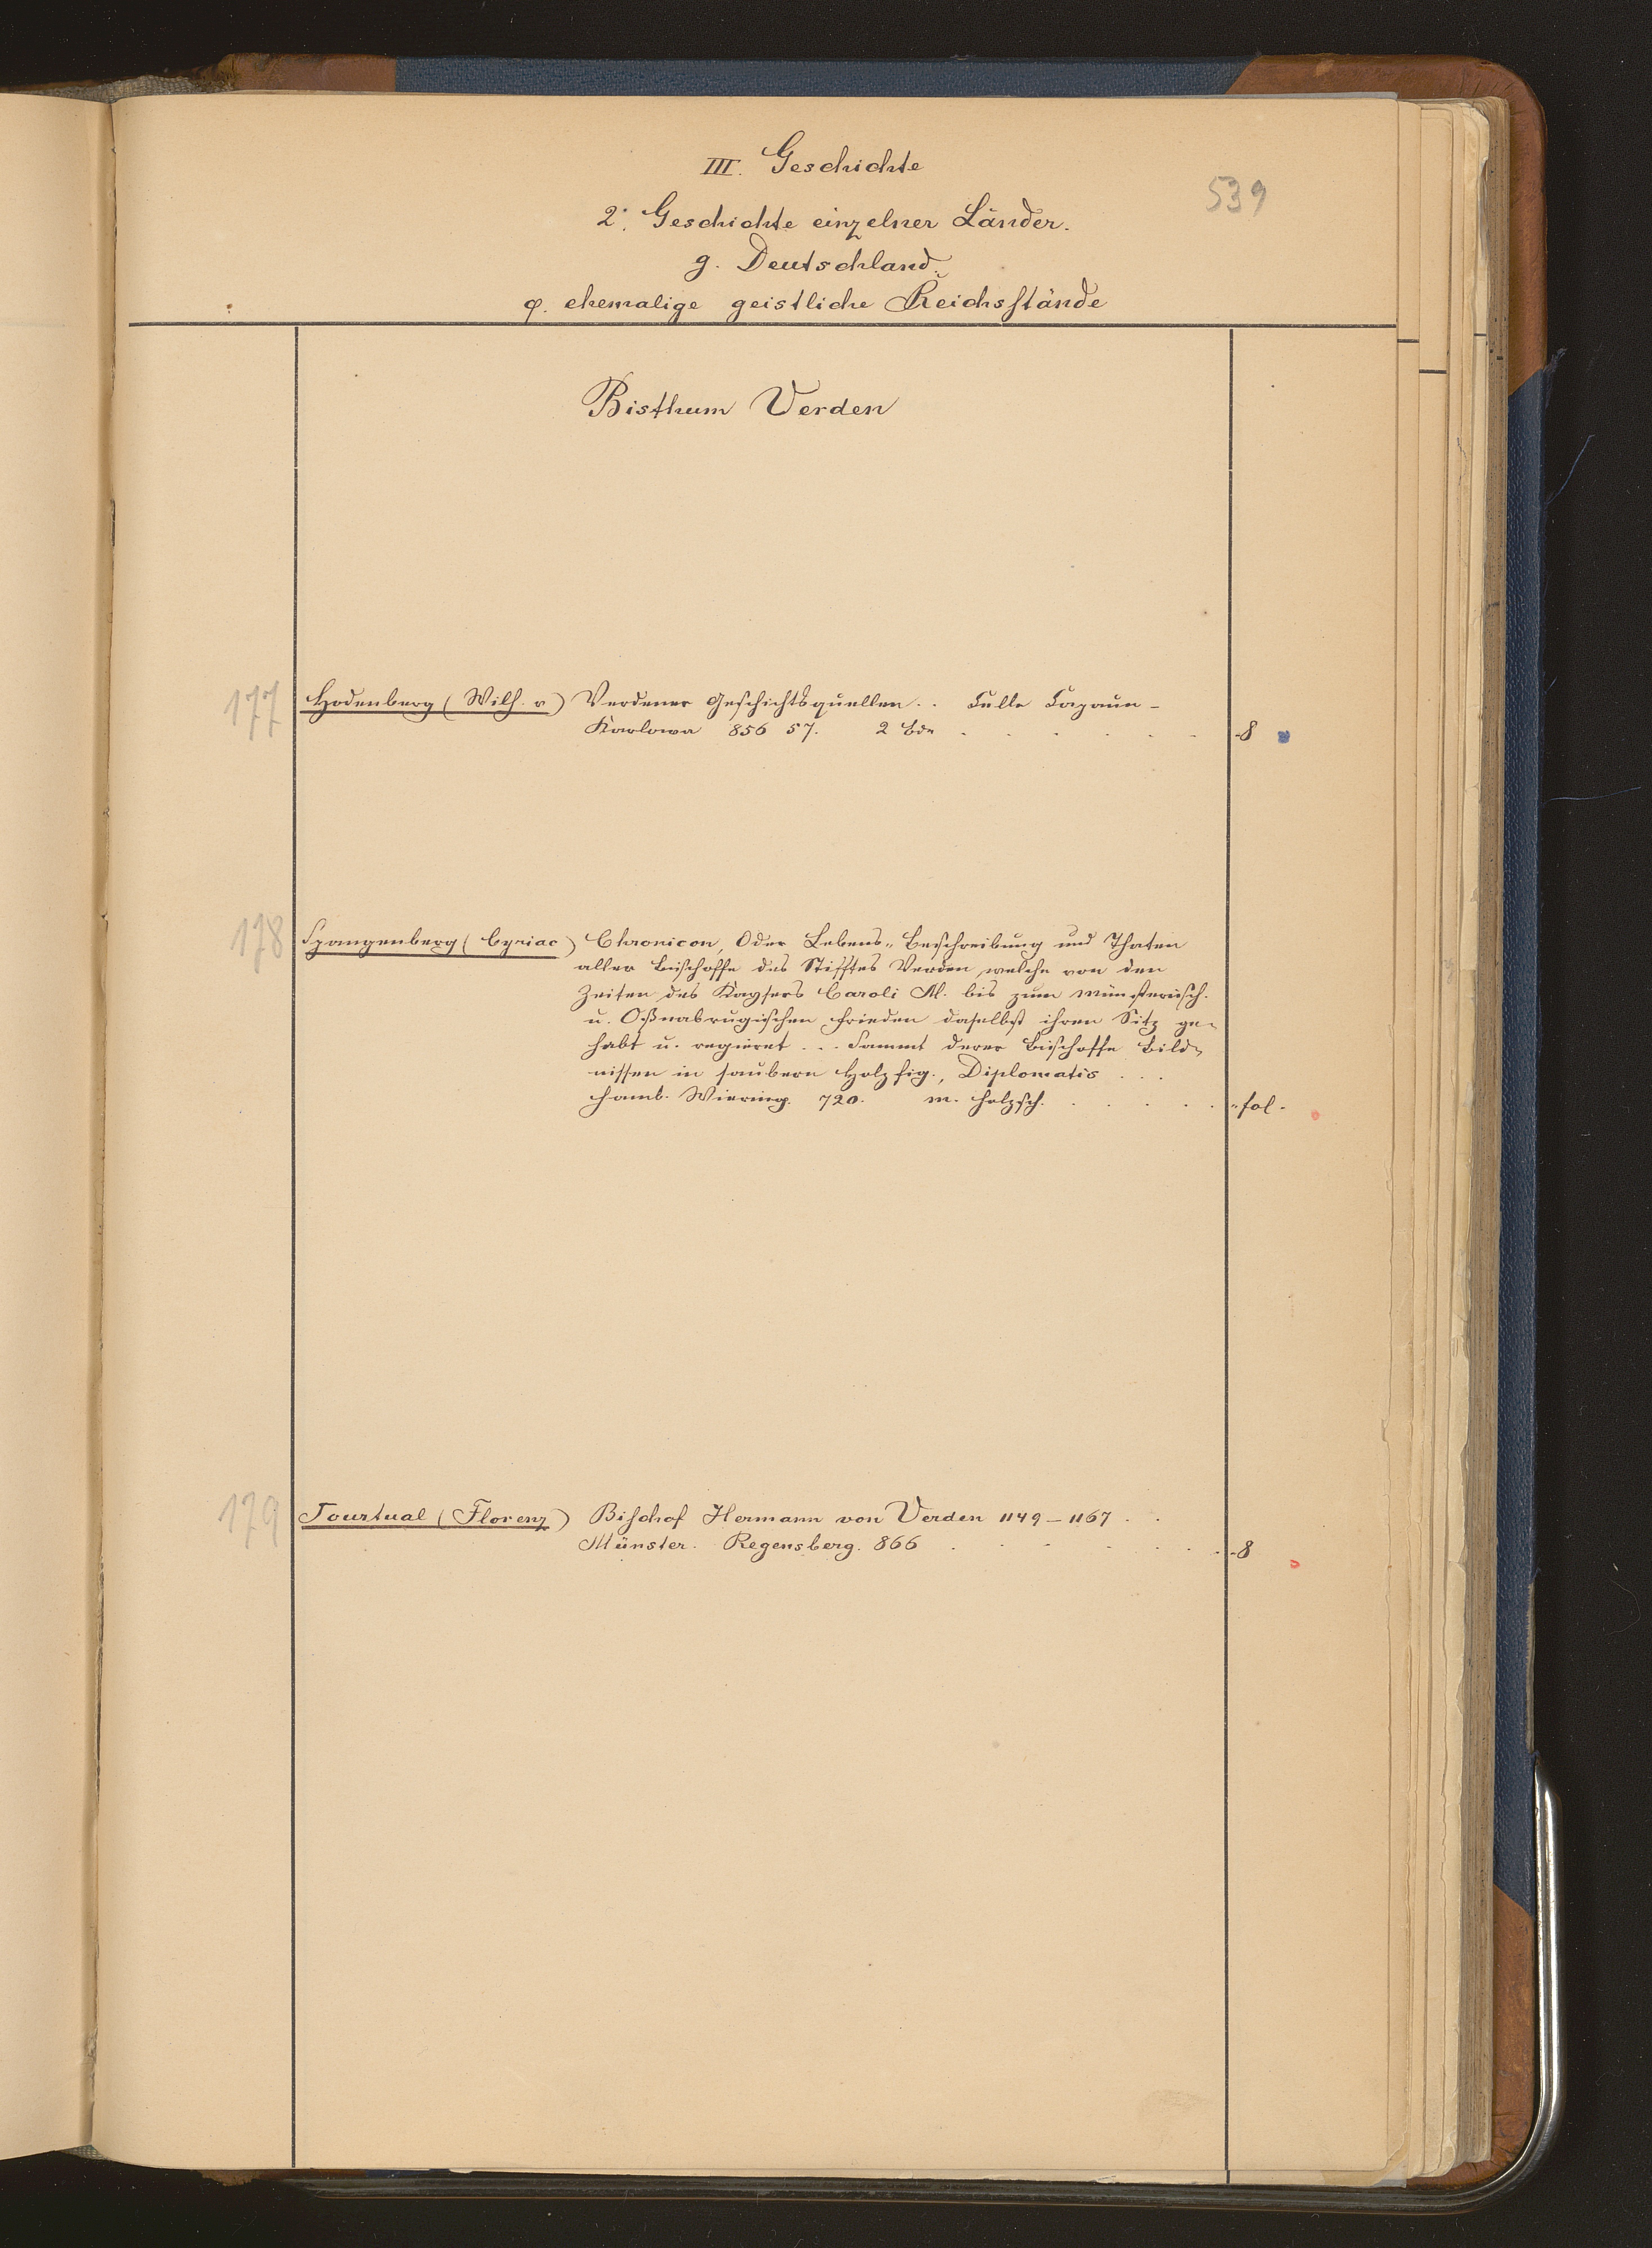 539
III. Geschichte
2. Geschichte einzelner Länder.
g. Deutschland.
φ. ehemalige geistliche Reichsstände
Bisthum Verden
177 Hodenberg (Wilh. v) Verdener Geschichtsquellen . . Celle Capaun-
Karlowa 856 57. 2 Bde . . . . . . -8
178 Spangenberg (Cyriac) Chronicon, Oder Lebens-Beschreibung und Thaten
aller Bischoffe des Stifftes Verden, welche von den
Zeiten des Kaysers Caroli M. bis zum münsterisch.
u. Oßnabrugischen Frieden daselbst ihren Sitz ge-
habt u. regieret . . . Sammt derer Bischoffe Bild-
nissen in saubern Holzfig., Diplomatis . . .
Hamb. Wiering. 720. m. Holzsch. . . . . . -fol-
179 Tourtual (Florenz) Bischof Hermann von Verden 1149-1167 . .
Münster. Regensberg. 866 . . . . . . -8